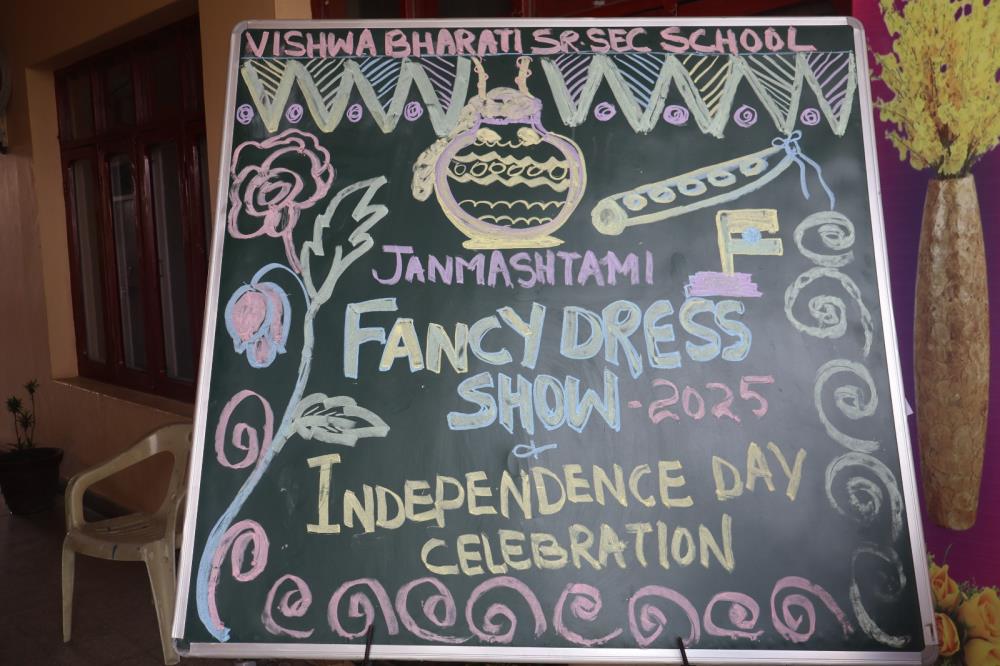 VISHWA BHARATI SR. SEC SCHOOL
JANMASHTAMI
FANCY DRESS
SHOW - 2025
&
INDEPENDENCE DAY
CELEBRATION